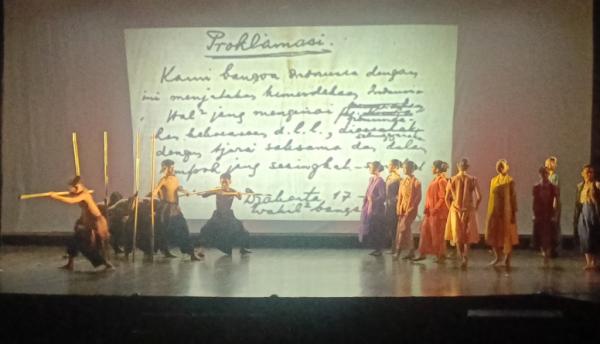 Proklamasi.
Kami bangsa Indonesia dengan
ini menjatakan kemerdekaan Indones
Hal² jang mengenai
kekoeasaan d.l.l., diselenggarakan
dengan tjara saksama dan dalam
tempoh jang sesingkat-
Djakarta 17 -
Wakil² bangsa